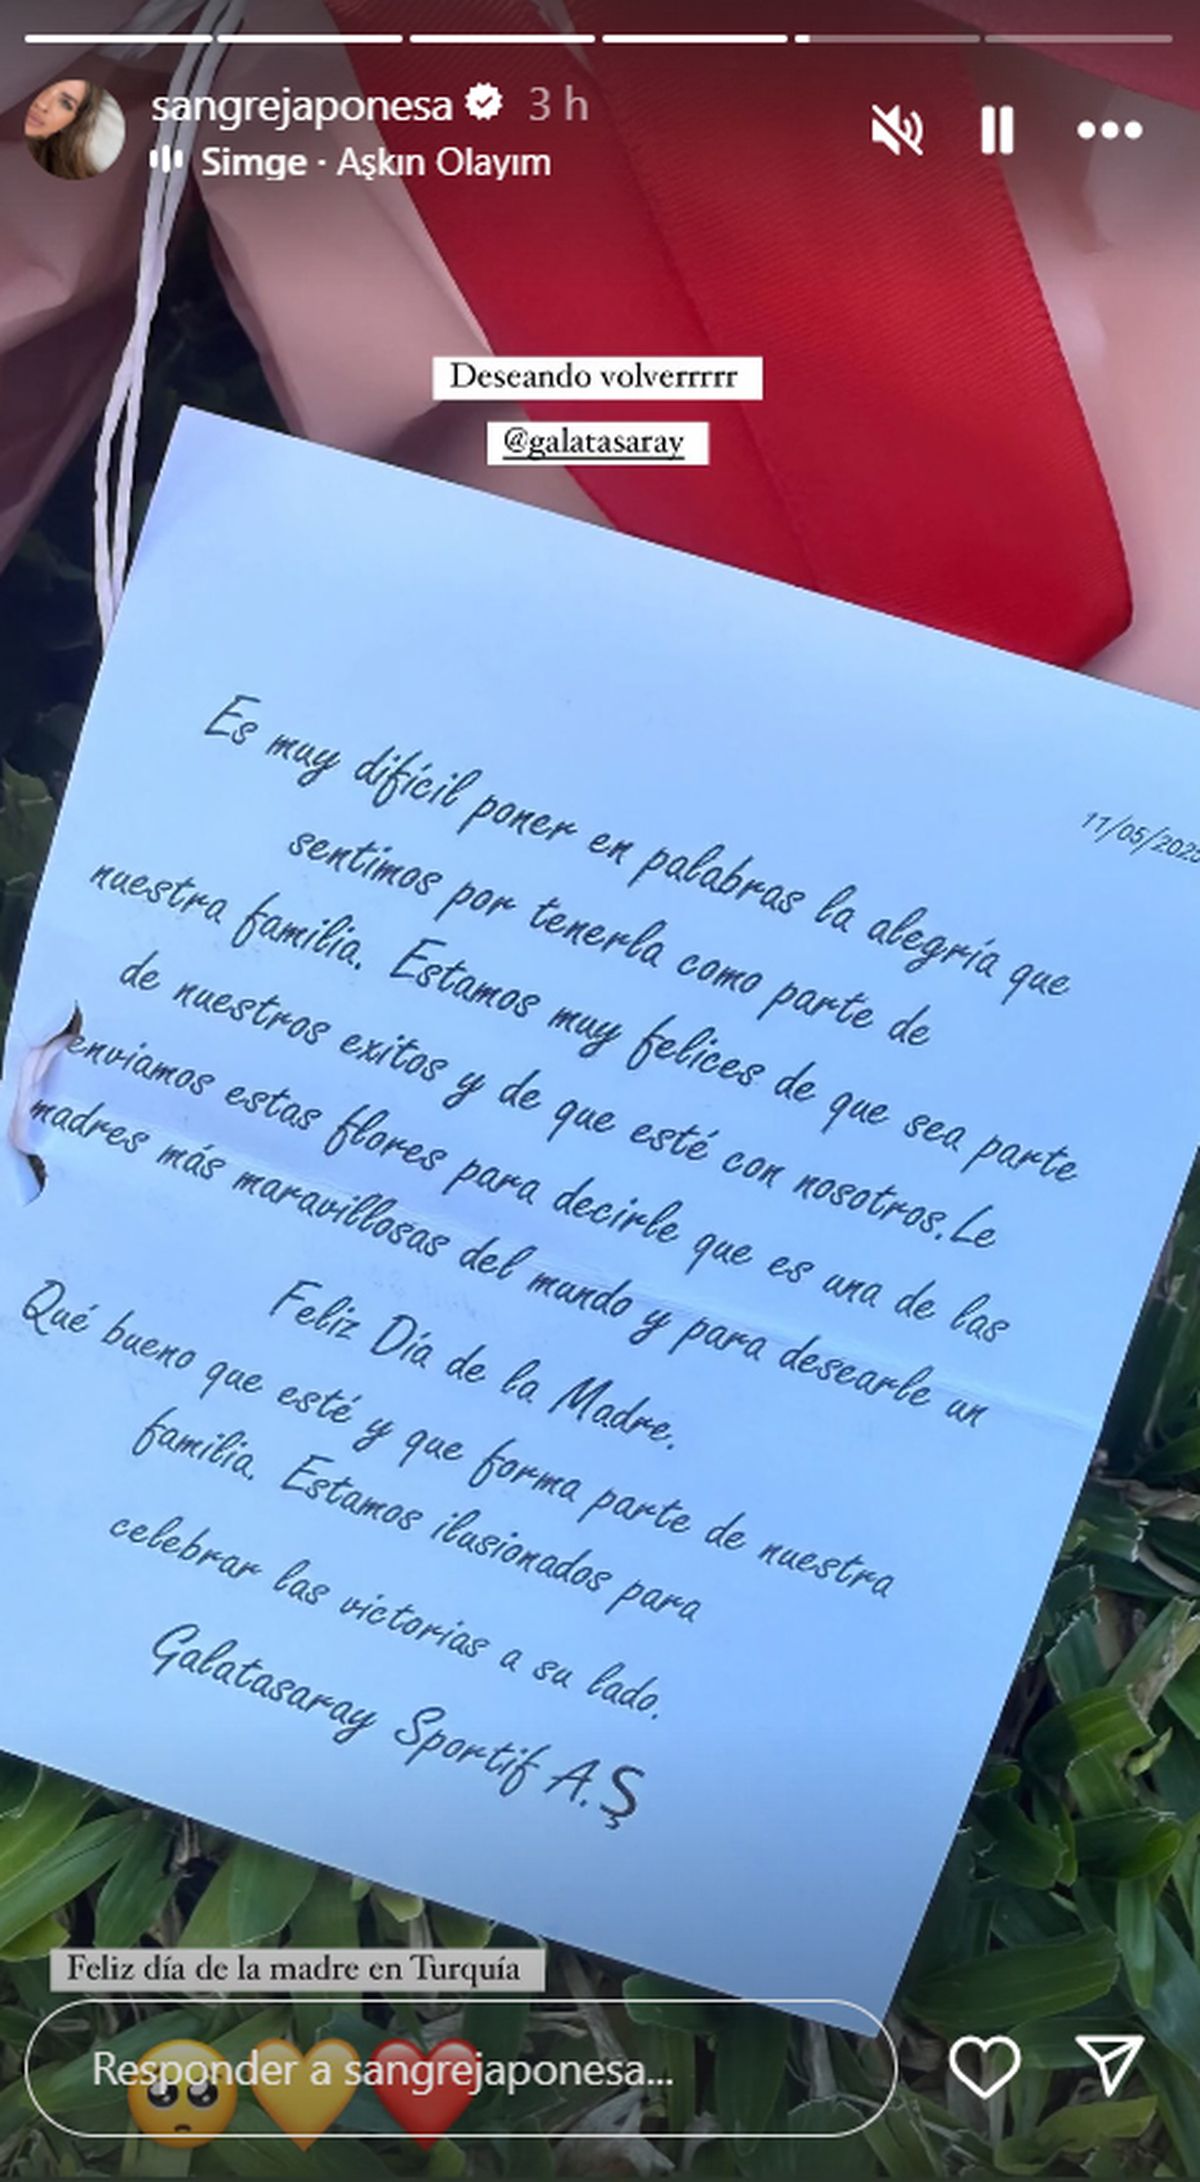 sangrejaponesa 3 h
Simge · Aşkın Olayım
Deseando volverrrrr
@galatasaray
11/05/2025
Es muy difícil poner en palabras la alegría que
sentimos por tenerla como parte de
nuestra familia. Estamos muy felices de que sea parte
de nuestros exitos y de que esté con nosotros.Le
enviamos estas flores para decirle que es una de las
madres más maravillosas del mundo y para desearle un
Feliz Día de la Madre.
Qué bueno que esté y que forma parte de nuestra
familia. Estamos ilusionados para
celebrar las victorias a su lado.
Galatasaray Sportif A.Ş
Feliz día de la madre en Turquía
Responder a sangrejaponesa...